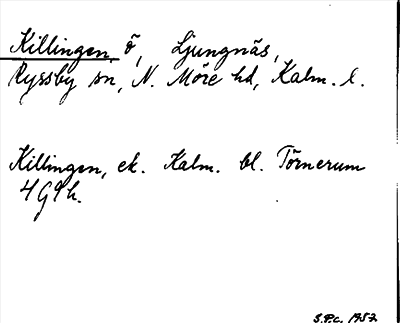 Killingen ö, Ljungnäs,
Ryssby sn, N. Möre hd, Kalm. l.
Killingen, ek. Kalm. bl. Törnerum
4G9h.
S.P.c. 1957